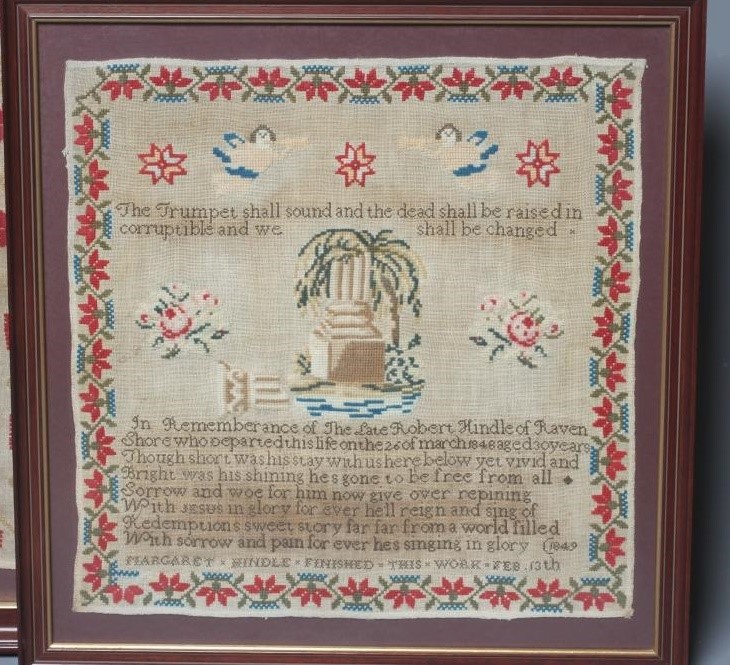 The Trumpet shall sound and the dead shall be raised in
corruptible and we shall be changed
In Rememberance of The Late Robert Hindle of Raven
Shore who departed this life on the 26 of march 1848 aged 30 years
Though short was his stay with us here below yet vivid and
Bright was his shining hes gone to be free from all
Sorrow and woe for him now give over repining
With JESUS in glory for ever hell reign and sing of
Redemptions sweet story far far from a world filled
With sorrow and pain for ever hes singing in glory 1849
MARGARET HINDLE FINISHED THIS WORK FEB. 13th